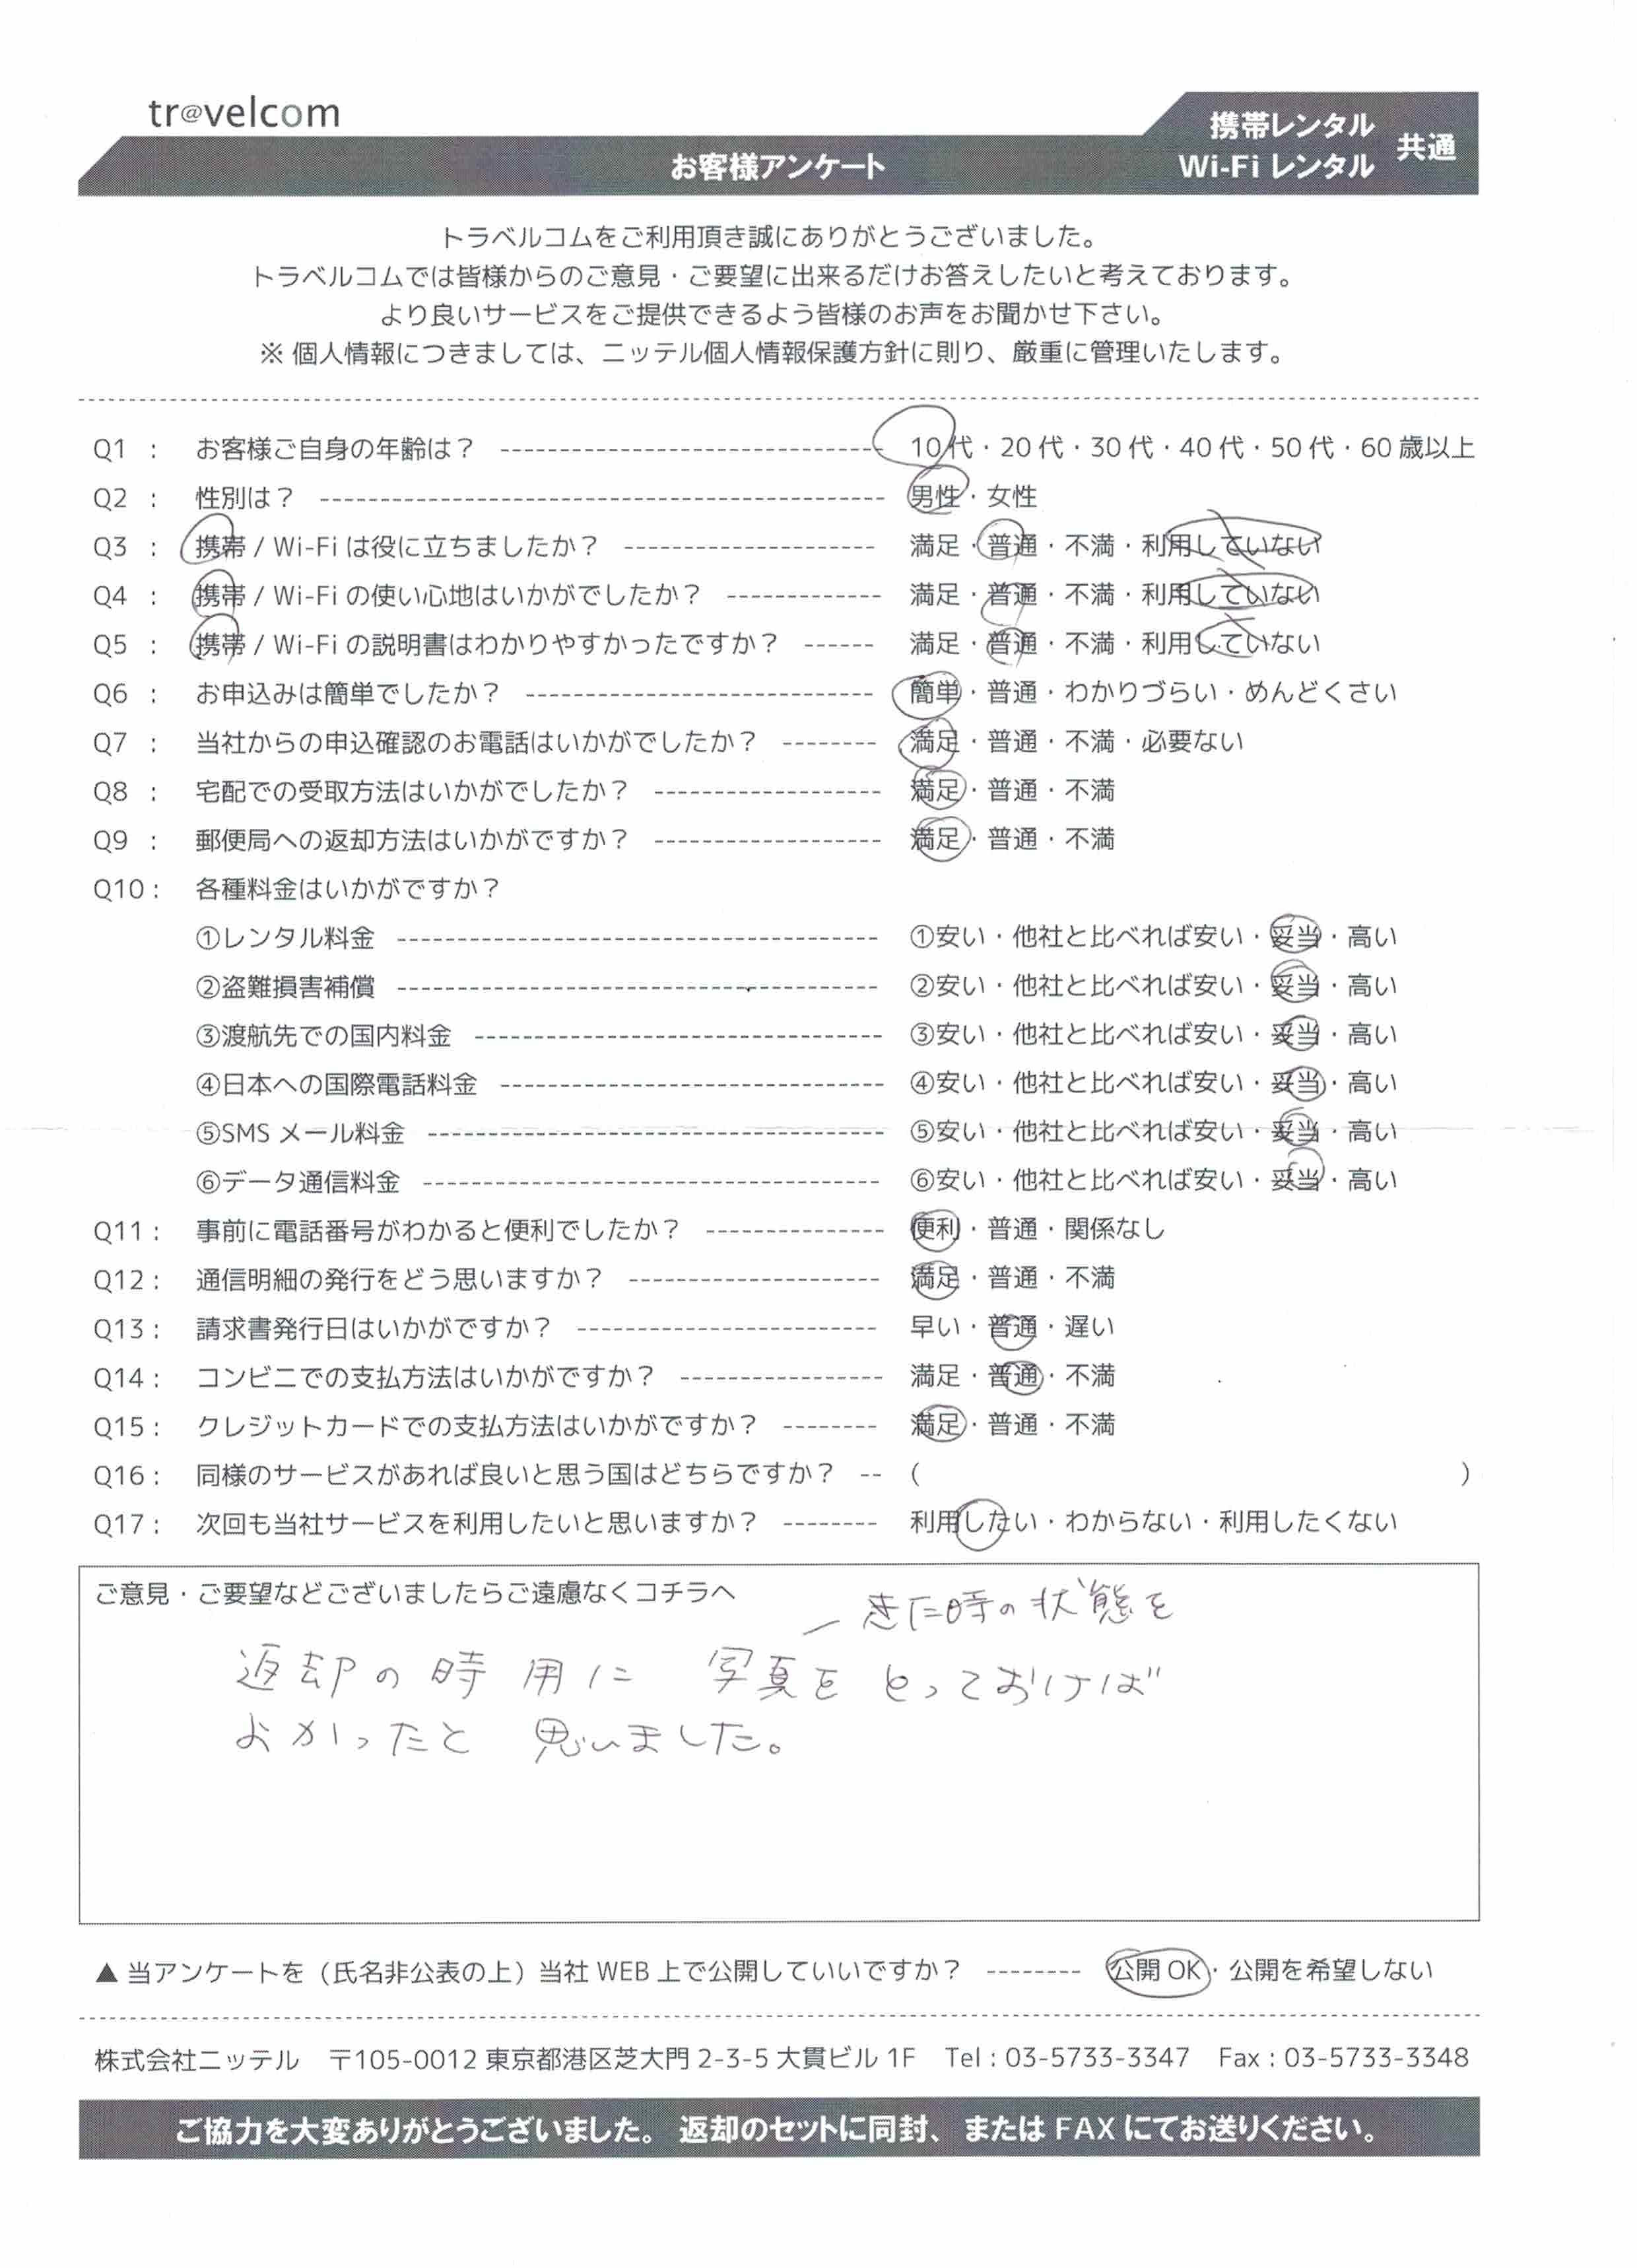 tr@velcom
お客様アンケート
携帯レンタル
Wi-Fi レンタル
共通
トラベルコムをご利用頂き誠にありがとうございました。
トラベルコムでは皆様からのご意見・ご要望に出来るだけお答えしたいと考えております。
より良いサービスをご提供できるよう皆様のお声をお聞かせ下さい。
※ 個人情報につきましては、ニッテル個人情報保護方針に則り、厳重に管理いたします。
Q1 : お客様ご自身の年齢は? 10代・20代・30代・40代・50代・60歳以上
Q2 : 性別は? 男性・女性
Q3 : 携帯 / Wi-Fi は役に立ちましたか? 満足・普通・不満・利用していない
Q4 : 携帯 / Wi-Fi の使い心地はいかがでしたか? 満足・普通・不満・利用していない
Q5 : 携帯 / Wi-Fi の説明書はわかりやすかったですか? 満足・普通・不満・利用していない
Q6 : お申込みは簡単でしたか? 簡単・普通・わかりづらい・めんどくさい
Q7 : 当社からの申込確認のお電話はいかがでしたか? 満足・普通・不満・必要ない
Q8 : 宅配での受取方法はいかがでしたか? 満足・普通・不満
Q9 : 郵便局への返却方法はいかがですか? 満足・普通・不満
Q10 : 各種料金はいかがですか?
①レンタル料金 ①安い・他社と比べれば安い・妥当・高い
②盗難損害補償 ②安い・他社と比べれば安い・妥当・高い
③渡航先での国内料金 ③安い・他社と比べれば安い・妥当・高い
④日本への国際電話料金 ④安い・他社と比べれば安い・妥当・高い
⑤SMS メール料金 ⑤安い・他社と比べれば安い・妥当・高い
⑥データ通信料金 ⑥安い・他社と比べれば安い・妥当・高い
Q11 : 事前に電話番号がわかると便利でしたか? 便利・普通・関係なし
Q12 : 通信明細の発行をどう思いますか? 満足・普通・不満
Q13 : 請求書発行日はいかがですか? 早い・普通・遅い
Q14 : コンビニでの支払方法はいかがですか? 満足・普通・不満
Q15 : クレジットカードでの支払方法はいかがですか? 満足・普通・不満
Q16 : 同様のサービスがあれば良いと思う国はどちらですか? ( )
Q17 : 次回も当社サービスを利用したいと思いますか? 利用したい・わからない・利用したくない
ご意見・ご要望などございましたらご遠慮なくコチラへ
きた時の状態を
返却の時用に 写真をとっておけば
よかったと 思いました。
▲ 当アンケートを(氏名非公表の上)当社 WEB 上で公開していいですか? 公開 OK・公開を希望しない
株式会社ニッテル 〒105-0012 東京都港区芝大門 2-3-5 大貫ビル 1F Tel : 03-5733-3347 Fax : 03-5733-3348
ご協力を大変ありがとうございました。返却のセットに同封、または FAX にてお送りください。